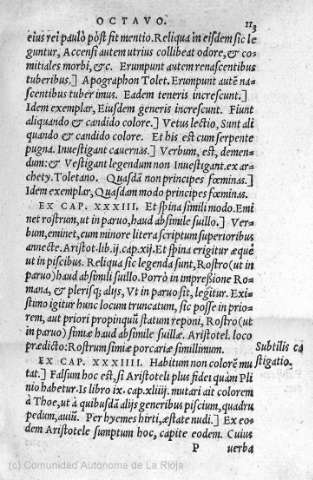 OCTAVO. 113
eius rei paulò pòst fit mentio. Reliqua in eisdem sic le
guntur, Accensi autem utrius collibeat odore, & co
mitiales morbi, &c. Erumpunt autem renascentibus
tuberibus.] Apographon Tolet. Erumpunt autẽ na-
scentibus tuber imus. Eadem teneris increscunt.]
Idem exemplar, Eiusdem generis increscunt. Fiunt
aliquando & candido colore.] Vetus lectio, Sunt ali
quando & candido colore. Et his est cum serpente
pugna. Inuestigant cauernas.] Verbum, est, demen-
dum: & Vestigant legendum non Inuestigant. ex ar-
chety. Toletano. Quasdã non principes fœminas.]
Idem exemplar, Quasdam modo principes fœminas.
EX CAP. XXXIII. Et spina simili modo. Emi
net rostrum, ut in paruo, haud absimile suillo.] Ver-
bum, eminet, cum minore litera scriptum superioribus
annecte. Aristot. lib. ij. cap. xij. Et spina erigitur æquè
ut in piscibus. Reliqua sic legenda sunt, Rostro (ut in
paruo) haud absimili suillo. Porrò in impreßione Ro-
mana, & plerisq; alijs, Vt in paruo sit, legitur. Exi-
stimo igitur hunc locum truncatum, sic posse in prio-
rem, aut priori propinquũ statum reponi, Rostro (ut
in paruo) simiæ haud absimile suillæ. Aristotel. loco
prædicto: Rostrum simiæ porcariæ simillimum.
Subtilis ca
stigatio.
EX CAP. XXXIIII. Habitum non colorẽ mu
tat.] Falsum hoc est, si Aristoteli plus fidei quàm Pli
nio habetur. Is libro ix. cap. xliiij. mutari ait colorem
à Thoe, ut à quibusdã alijs generibus piscium, quadru
pedum, auiũ. Per hyemes hirti, æstate nudi.] Ex eo-
dem Aristotele sumptum hoc, capite eodem. Cuius
P uerba
(c) Comunidad Autónoma de La Rioja